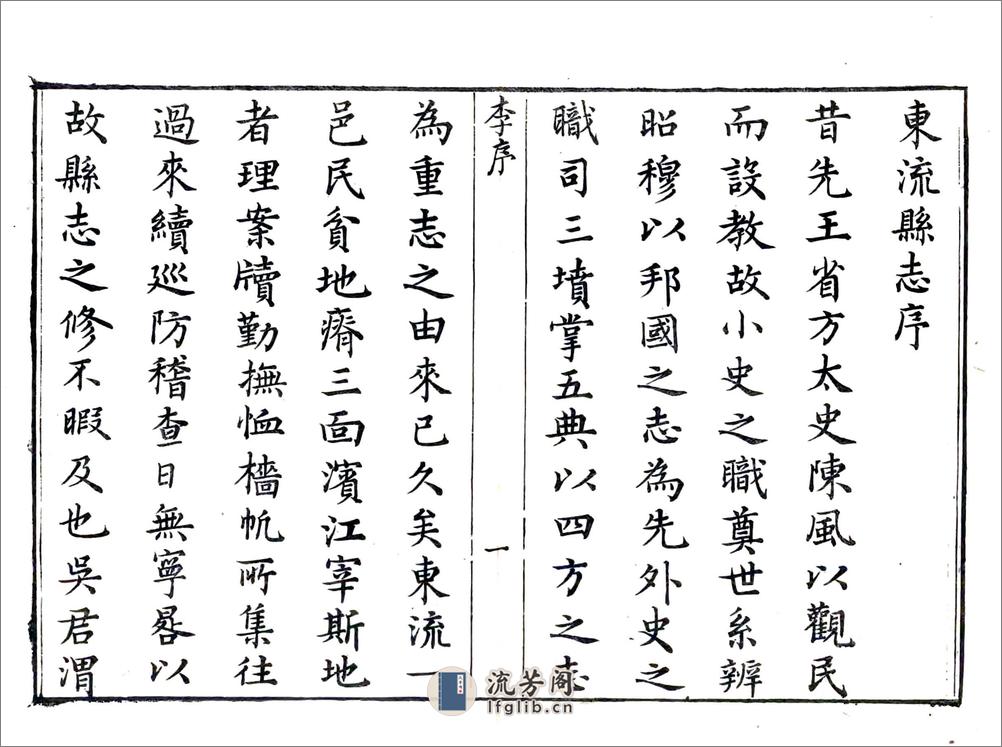 東流縣志序
昔先王省方太史陳風以觀民
而設教故小史之職奠世系辨
昭穆以邦國之志為先外史之
職司三墳掌五典以四方之志
李序
一
為重志之由來已久矣東流一
邑民貧地瘠三面濱江宰斯地
者理案牘勤撫恤檣帆所集往
過來續廵防稽查日無寧晷以
故縣志之修不暇及也吳君渭
流芳阁
lfglib.cn